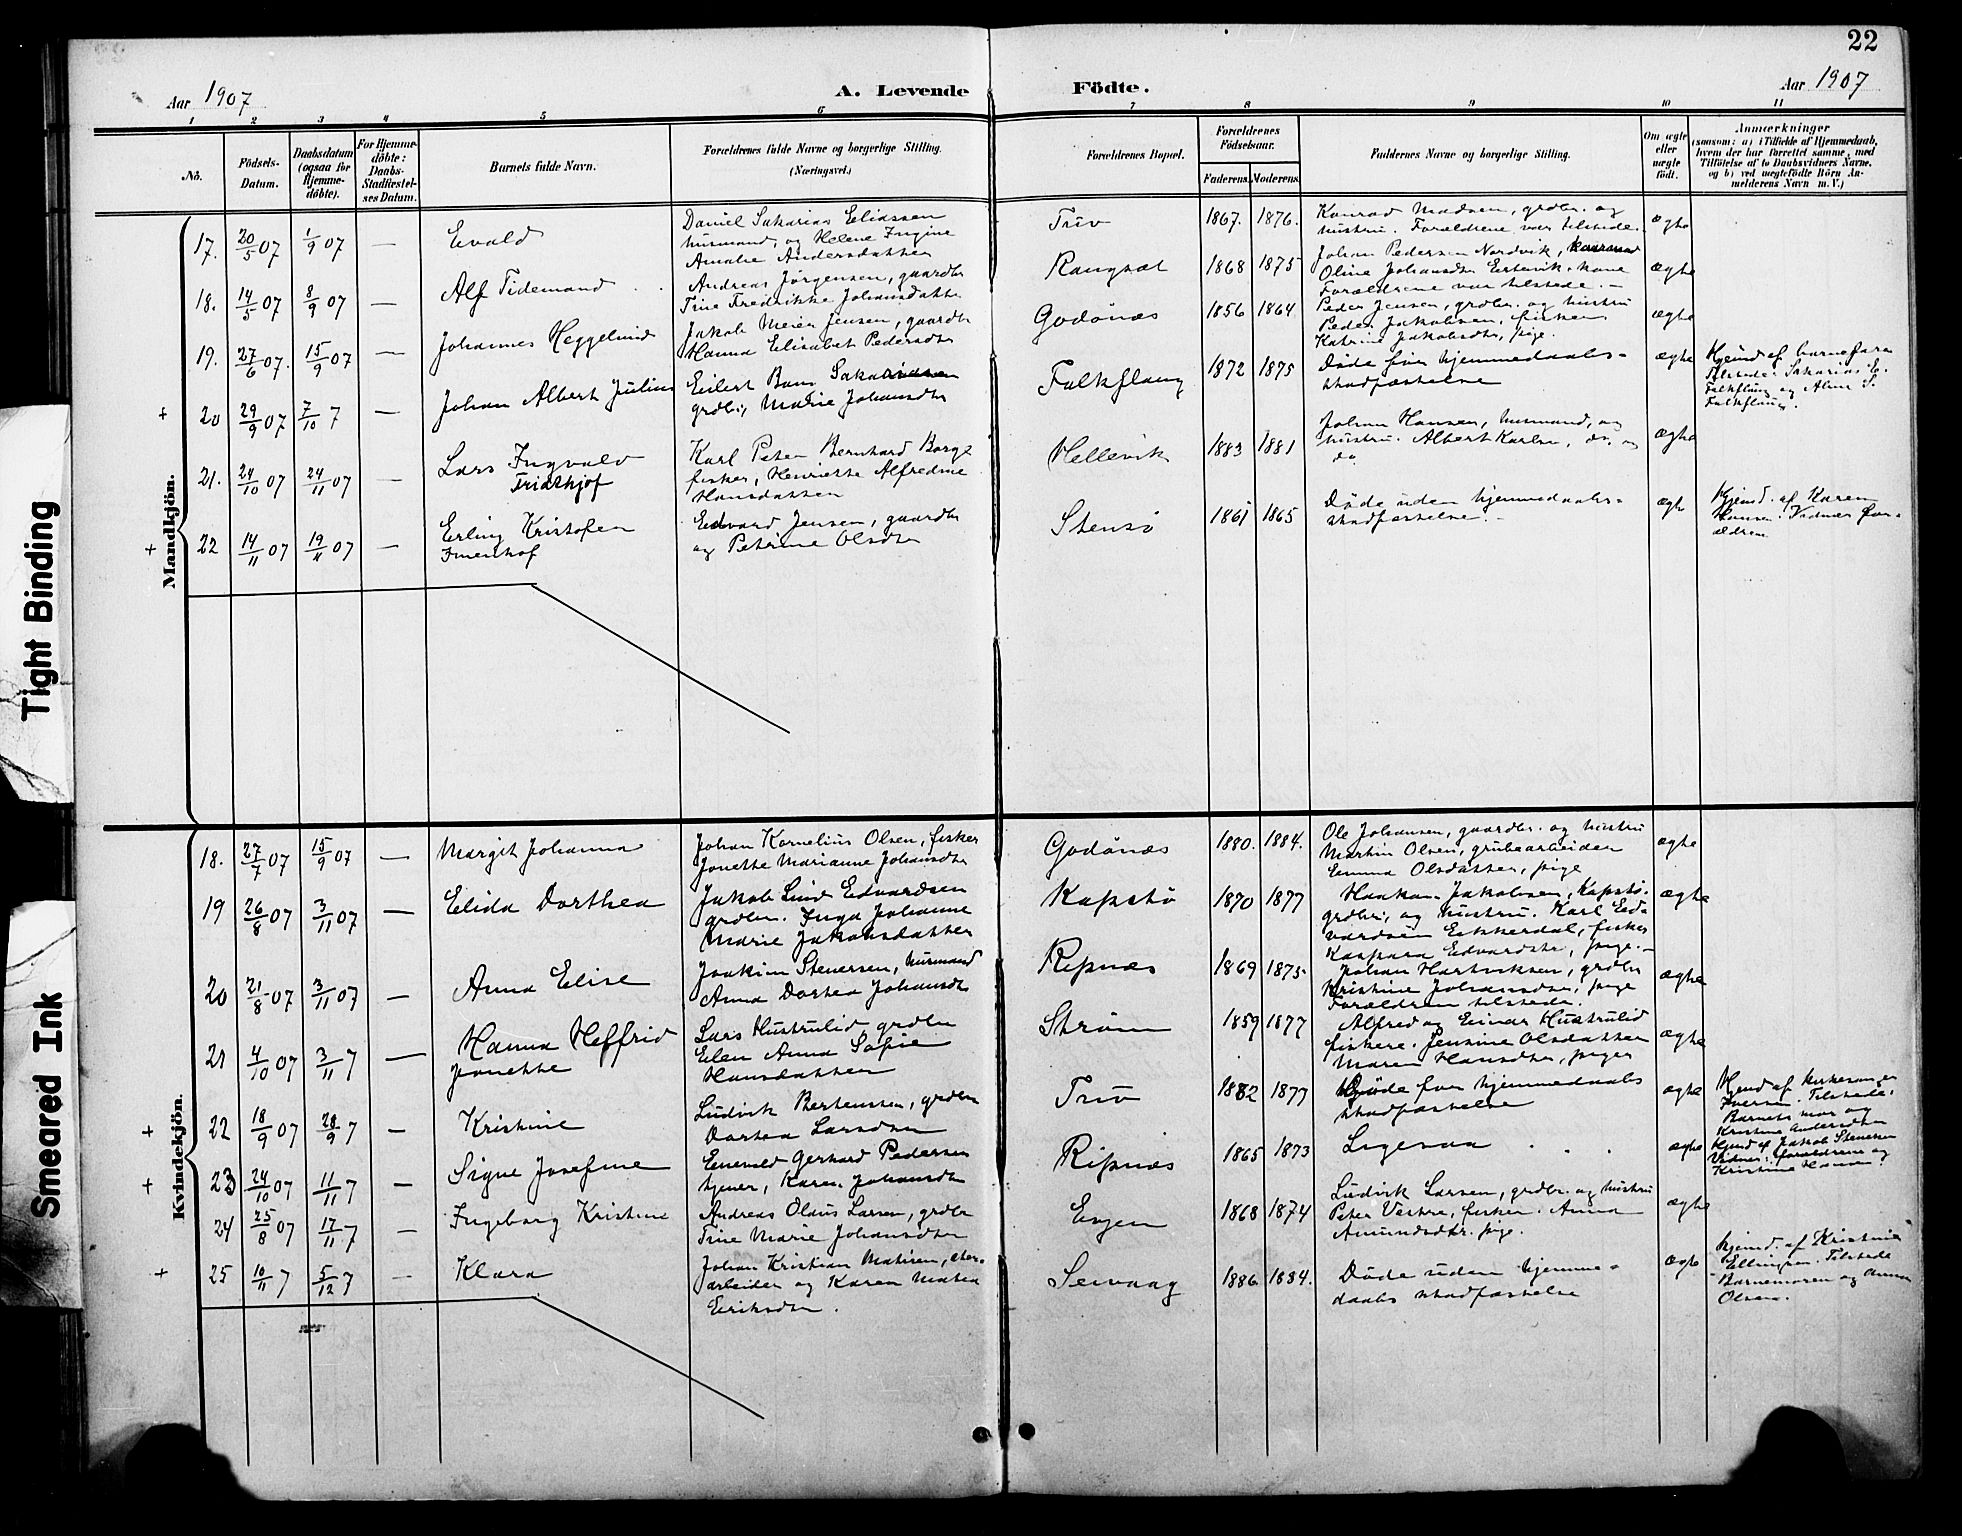 22
Aar 1907
A. Levende
Födte.
Aar 1907
1 2 3 4 5 6 7 8 9 10 11
No.
Födsels-
Datum.
Daabsdatum
(ogsaa for
Hjemme-
döbte).
For Hjemme-
döbte:
Daabs-
Stadfæstel-
ses Datum.
Barnets fulde Navn.
Forældrenes fulde Navne og borgerlige Stilling.
(Næringsvei.)
Forældrenes Bopæl.
Forældrenes
Födselsaar.
Faderens.
Moderens.
Faddernes Navne og borgerlige Stilling.
Om ægte
eller
uægte
födt.
Anmærkninger
(saasom: a) i Tilfælde af Hjemmedaab,
hvem der har forrettet samme, med
Tilföielse af to Daabsvidners Navne,
og b) ved uægtefödte Börn An-
melderens Navn m. V.)
Mandkjön.
17. 20/5 07 1/9 07 — Evald
Daniel Sakarias Eliassen
husmand og Helene Ingine
Amalie Andersdatter
Triv 1867. 1876.
Konrad Madsen, grdbr. og
hustru. Forældrene var tilstede.
ægte
18. 14/5 07 8/9 07 — Alf Tidemand
Andreas Jørgensen, gaardbr
Trine Fredrikke Johansdatter
Rangsæt 1868 1875
Johan Pedersen Nordvik,
Oline Johansdtr kone
Forældrene var tilstede. —
ægte
19. 27/6 07. 15/9 07 — Johannes Heggelund
Jakob Meier Jensen, gaardbr
Hanna Elisabet Pedersdtr
Godönes 1856 1864
Peder Jensen, grdbr. og hustru
Peder Jakobsen, fisker
Katrine Jakobsdtr, pige.
ægte
+ 20 29/9 07 7/10 7 — Johan Albert Julius
Eilert Bans Sakariassen
grdbr, Marie Johansdtr
Falkflaug 1872 1875
Døde før hjemmedaabs-
stadfæstelse
ægte
Hjemd af barnefara
Tilstede: Sakarias E.
Falkflaug og Aline S.
Falkflaug.
21. 24/10 07 24/11 07 — Lars Ingvald
Fridthjof
Karl Peter Bernhard Borge
fisker, Henriette Alfredine
Hansdatter
Hellevik 1883 1881
Johan Hansen, husmand, og
hustru. Albert Karlsen, do, og
do.
ægte
+ 22 14/11 07 19/11 07 — Erling Kristofer
Imenhof
Edvard Jensen, gaardbr
og Petrine Olsdtr
Stensö 1861 1865
Døde uden hjemmedaabs-
stadfæstelse. —
ægte
Hjemd. af Karen
Hansen. Vidner for-
ældrene
Kvindekjön.
18. 27/7 07 15/9 07 — Margit Johanna
Johan Kornelius Olsen, fisker
Jonette Marianne Johansdtr
Godönes 1880. 1884.
Ole Johansen, gaardbr. og hustru
Martin Olsen, grubearbeider
Emma Olsdatter, pige
ægte
19 26/8 07 3/11 07 — Elida Dorthea
Jakob Lind Edvardsen
grdbr. Inga Johanne
Marie Jakobsdatter
Kapstø 1870 1877
Haakon Jakobsen, Kapstø.
grdbr, og hustru. Karl Ed-
vardsen Eikkerdal, fisker
Kaspara Edvardsdtr, pige. —
ægte
20 21/8 07 3/11 07 — Anna Elise
Joakim Stenersen, husmand
Anna Dortea Johansdtr
Ripnæs 1869 1875.
Johan Hartviksen, grdbr
Kristine Johansdtr, pige
Forældren tilstede.
ægte
21 4/10 07 3/11 7 — Hanna Heffrid
Jonette
Lars Hustrulid grdbr
Elen Anna Sofie
Hansdatter
Strøm 1859 1877
Alfred og Einar Hustrulid
fiskere. Jensine Olsdatter
Maren Hansdtr, piger
ægte
+ 22 18/9 07 28/9 7 — Kristine
Ludvik Bertensen, grdbr
Dortea Larsdtr
Triv 1882 1877
Døde før hjemmedaabs
stadfæstelse
ægte
Hjemd af kirkesanger
Iversen. Tilstede:
Barnets mor og
Kristine Andersdtr
+ 23 24/10 07 11/11 7 — Signe Josefine
Enevold Gerhard Pedersen
tjener, Karen Johansdtr
Ripnæs 1865 1873
Ligesaa
ægte
Hjemd af Jakob Stenersen
Vidner: forældrene og
Kristine Hansen.
24 25/8 07 17/11 7 — Ingeborg Kristine
Andreas Olaus Larsen, grdbr
Trine Marie Johansdtr
Evjen 1868 1874
Ludvik Larsen, grdbr. og hustru
Peter Vestre, fisker. Anna
Amundsdtr. pige.
ægte
+ 25 10/11 7 5/12 7 — Klara
Johan Kristian Matisen,
arbeider og Karen Matea
Eriksdtr.
Seivaag 1886 1884.
Døde uden hjemme-
daabs stadfæstelse
ægte
hjemd. af Kristine
Ellingsen. Tilstede
Barnemoren og Anna
Olsen.
Tight Binding
Smeared Ink